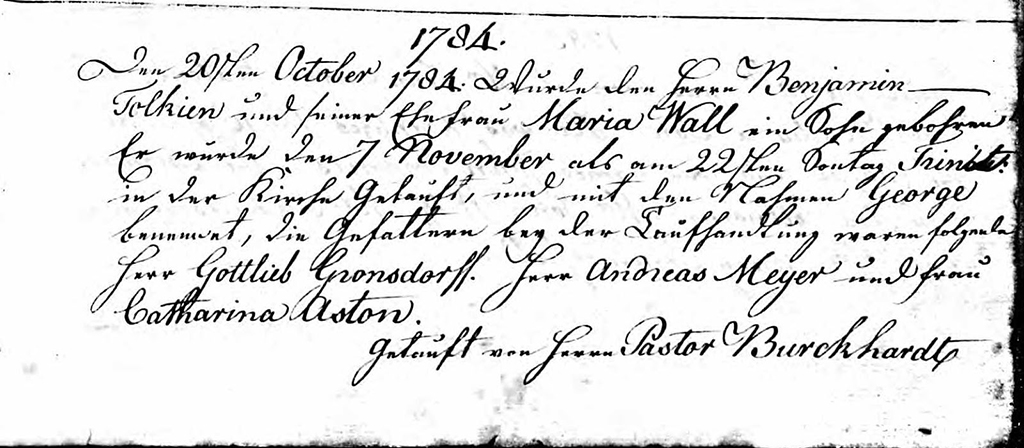 1784.
Den 20sten October 1784. Wurde den Herrn Benjamin
Tolkien und seiner Ehefrau Maria Wall ein Sohn gebohren
Er wurde den 7 November als am 22sten Sontag Trinit:
in der Kirche Getauft, und mit den Nahmen George
benennet, die Gefattern bey der Taufhandlung waren folgende
Herr Gottlieb Gronsdorff. Herr Andreas Meyer und Frau
Catharina Aston.
Getauft von Herrn Pastor Burckhardt